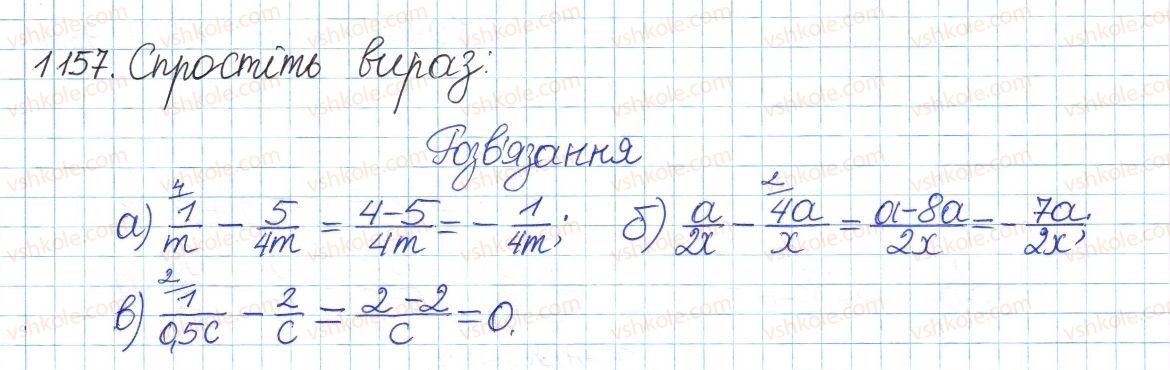 1157. Спростіть вираз:
Розв'язання
а) ⁴⁄ 1/m − 5/4m = 4−5/4m = − 1/4m; б) a/2x − ²⁄ 4a/x = a−8a/2x = − 7a/2x;
в) ²⁄ 1/0,5c − 2/c = 2−2/c = 0.